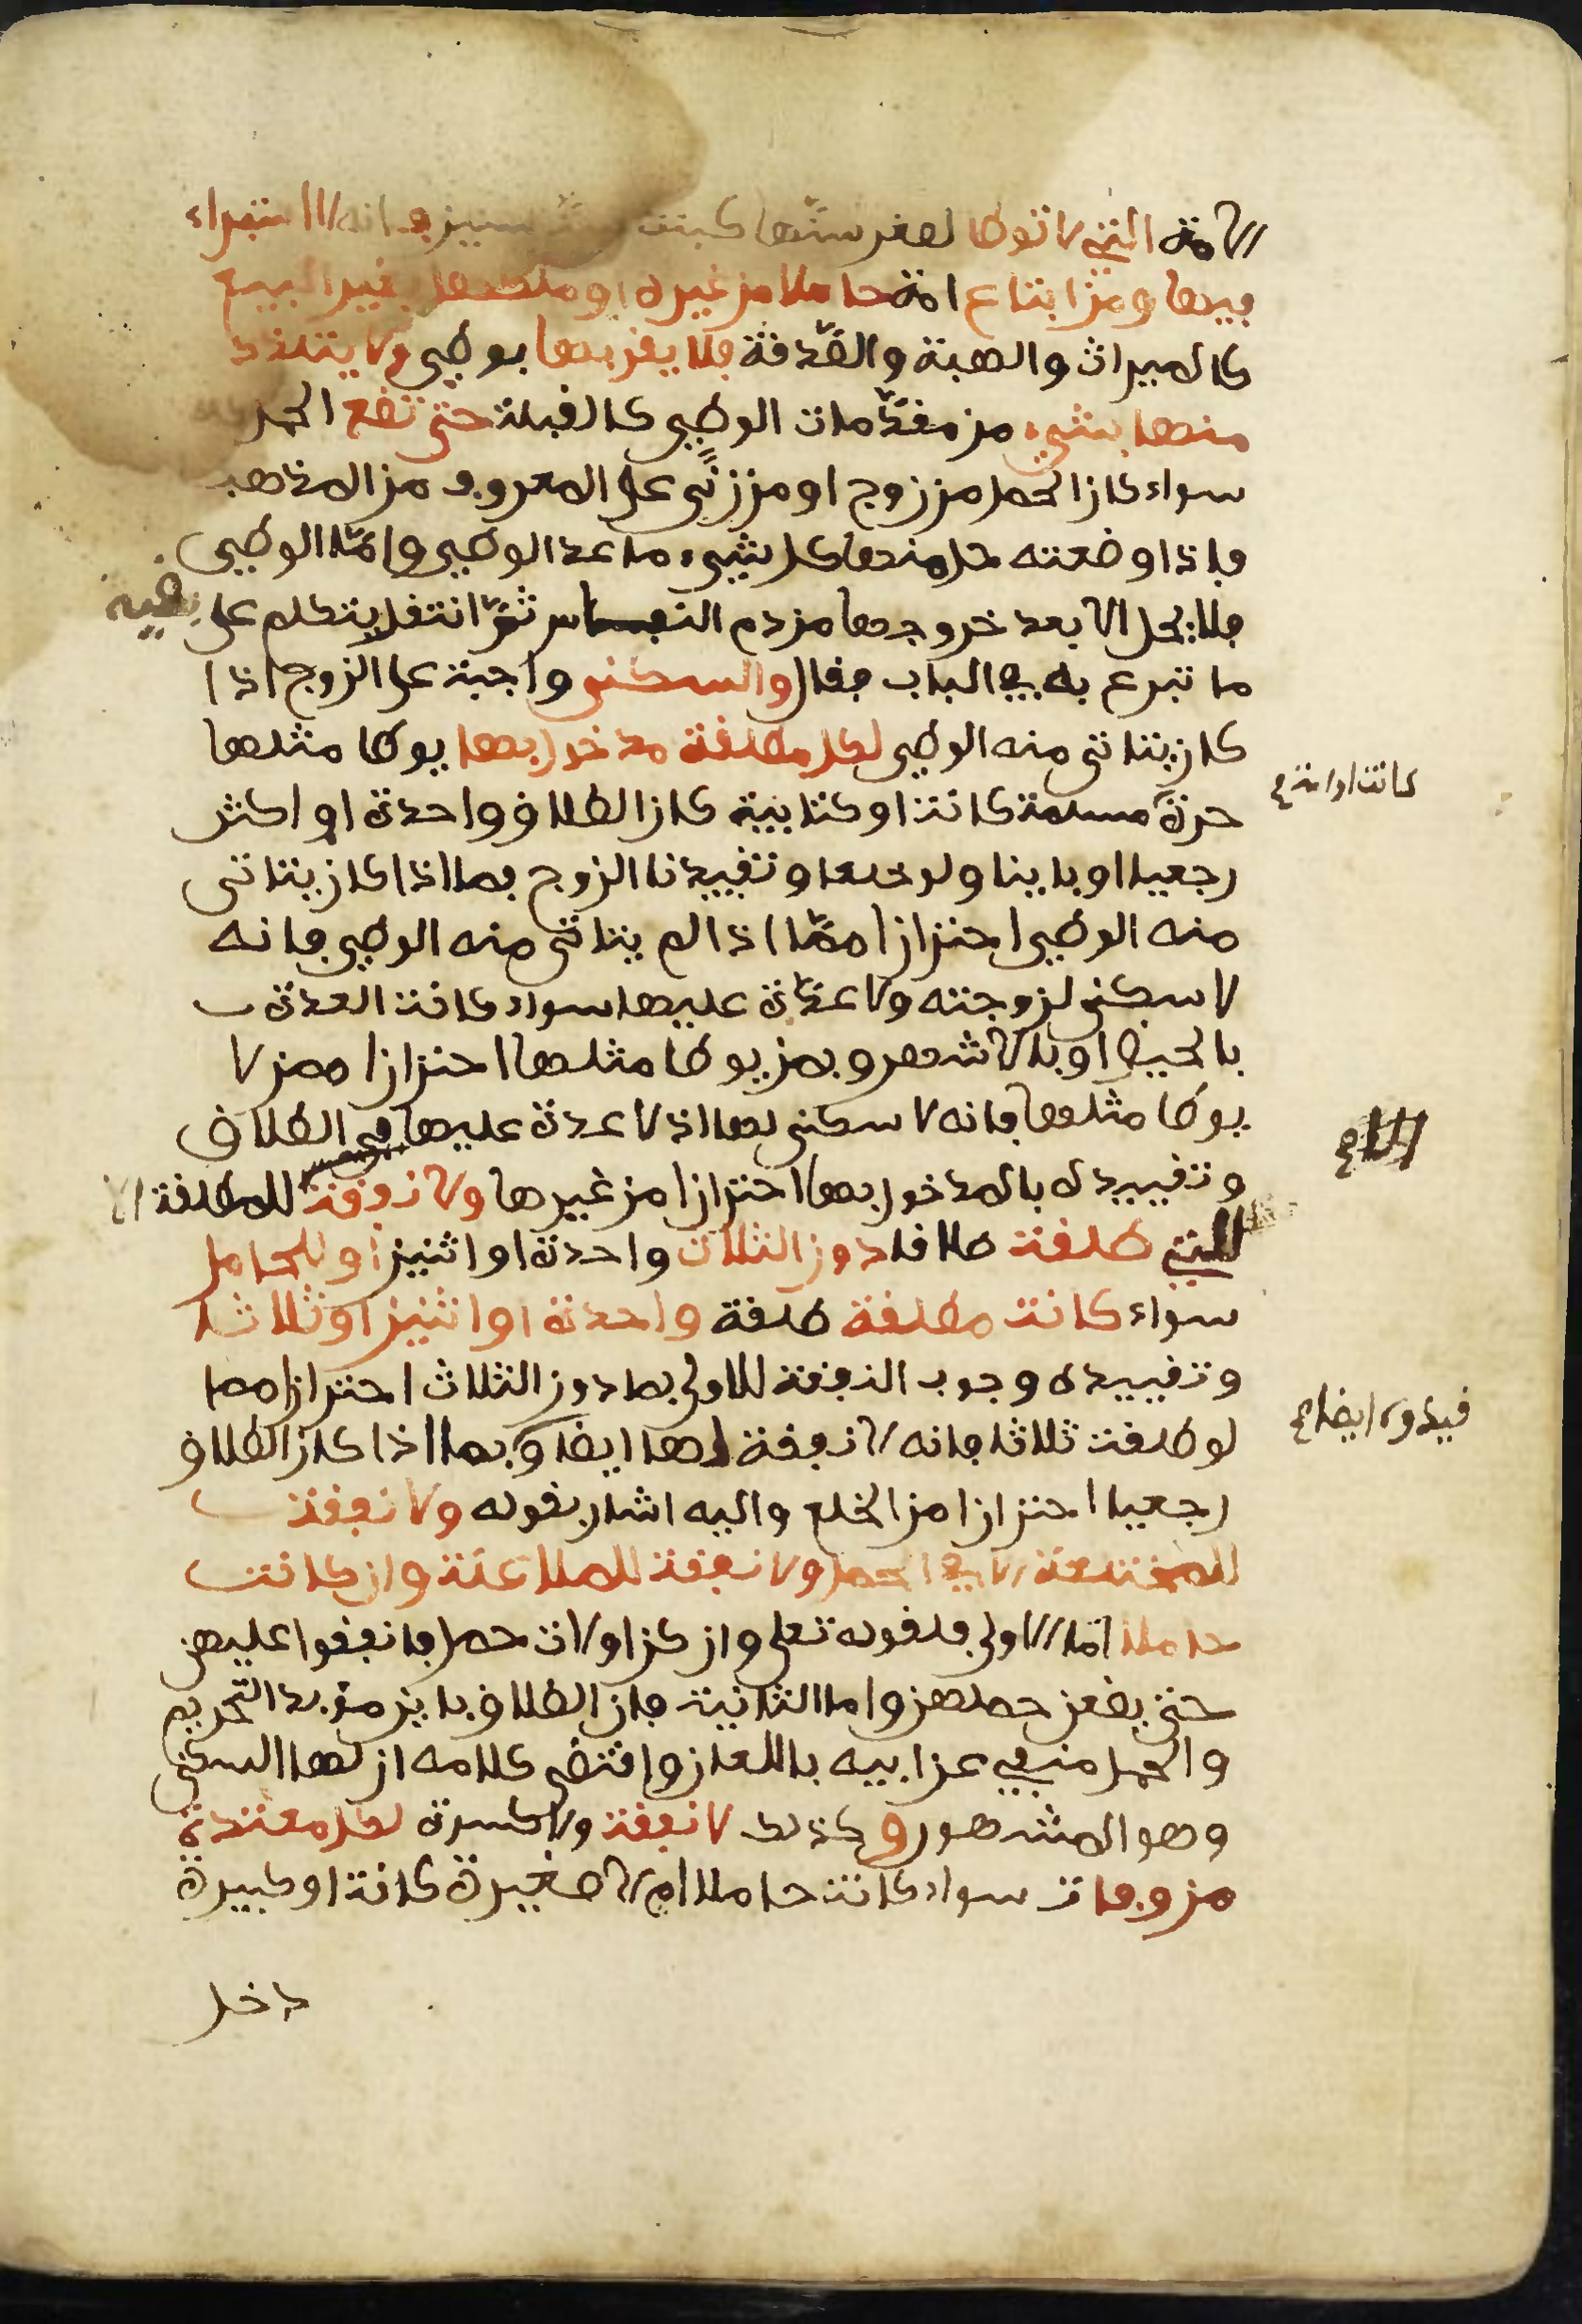 الامة التي لا توطا لصغر سنها كبنت سنين فانه لا استبراء
فيها ومن ابتاع امة حاملا من غيره او ملكها بغير البيع
كالميراث والهبة والصدقة فلا يقربها بوطي ولا يتلذذ
منها بشيء من مقدمات الوطي كالقبلة حتى تضع الحمل
سواء كان الحمل من زوج او من زنى على المعروف من المذهب
فاذا وضعته حل منها كل شيء ما عدا الوطي واما الوطي
فلا يحل الا بعد خروجها من دم النفاس ثم انتقل يتكلم على بقية
ما تبرع به في الباب فقال والسكنى واجبة على الزوج اذا
كان يتاتى منه الوطي لكل مطلقة مدخول بها يوطا مثلها
كانت او امة صح
حرة مسلمة كانت او كتابية كان الطلاق واحدة او اكثر
رجعيا او باينا ولو خلعا وتقييدنا الزوج بما اذا كان يتاتى
منه الوطي احترازا مما اذا لم يتاتى منه الوطي فانه
لا سكنى لزوجته ولا عدة عليها سواء كانت العدة
بالحيض او بالاشهر وبمن يوطا مثلها احترازا ممن لا
يوطا مثلها فانه لا سكنى لها اذ لا عدة عليها في الطلاق
وتقييده بالمدخول بها احترازا من غيرها ولا نفقة للمطلقة الا
للتي طلقت طلاقا دون الثلاث واحدة او اثنين او للحامل
سواء كانت مطلقة طلقة واحدة او اثنين او ثلاثا
وتقييده وجوب النفقة للاولى بما دون الثلاث احترازا مما
قيدوه ايضا صح
لو طلقت ثلاثا فانه لا نفقة لها ايضا وبما اذا كان الطلاق
رجعيا احترازا من الخلع واليه اشار بقوله ولا نفقة
للمختلعة الا في الحمل ولا نفقة للملاعنة وان كانت
حاملا اما الاولى فلقوله تعلى وان كن اولات حمل فانفقوا عليهن
حتى يضعن حملهن واما الثانية فان الطلاق باين مؤبد التحريم
والحمل منفي عن ابيه باللعان واقتضى كلامه ان لها السكنى
وهو المشهور وكذلك لا نفقة ولا كسوة لكل معتدة
من وفات سواء كانت حاملا ام لا صغيرة كانت او كبيرة
دخل